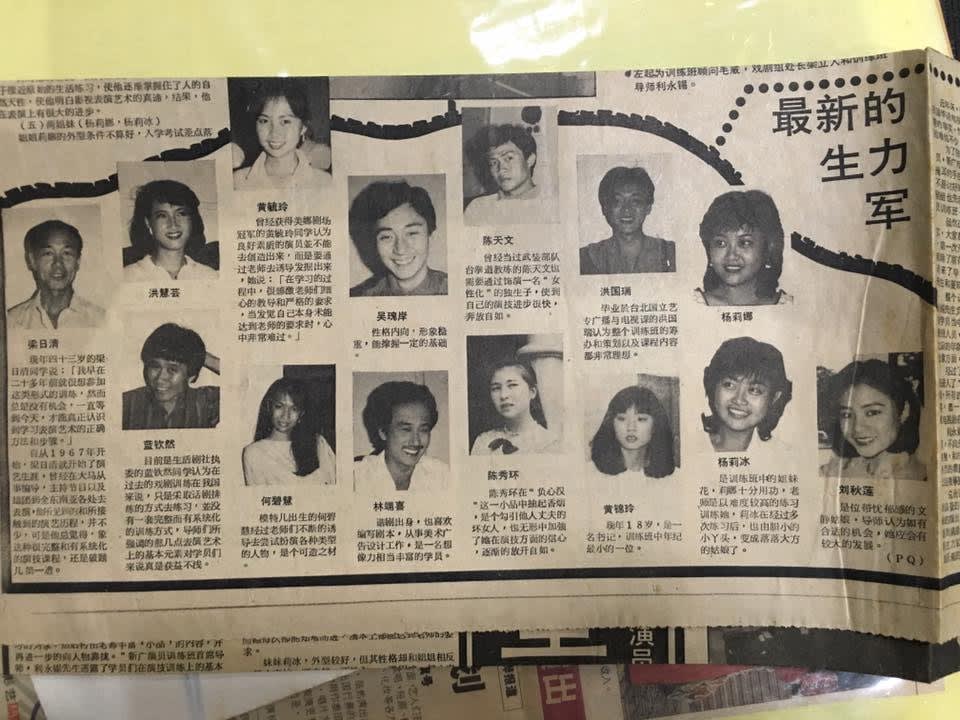 于接近原始的生活练习，使他逐渐掌握住了人的自
然天性，使他明白影视表演艺术的真谛，结果，他
在表演上有很大的进步。
（五）两姐妹（杨莉娜，杨莉冰）
姐姐莉娜的外型条件不算好，入学考试差点落
左起为训练班顾问毛威，戏剧组处长梁立人和训练班
导师利永锡。
最新的
生力
军
梁日清
现年四十三岁的梁
日清同学说：「我早在
二十多年前就很想参加
这类形式的训练，然而
总是没有机会，一直等
到今天，才能真正认识
到学习表演艺术的正确
方法和步骤。」
自从1967年开
始，梁日清就开始了演
艺生涯，曾经在大马从
事编导，主持节目以及
组团到全东南亚各处去
表演，他所见到的和所接
触到的演艺历程，并不
少，可是他总觉得，象
这种很完整和有系统化
的演技课程，还是破题
儿第一遭。
洪慧芸
蓝钦然
目前是生活剧社执
委的蓝钦然同学认为在
过去的戏剧训练在我国
来说，只是采取话剧排
练的方式去练习，并没
有一套完整而有系统化
的训练方式，导师们所
强调的那几点表演艺术
上的基本元素对学员们
来说真是获益不浅。
黄毓玲
曾经获得美娜剧场
冠军的黄毓玲同学认为
良好素质的演员并不能
去创造出来，而是要通
过老师去诱导发掘出来
，她说：「在学习的过
程中，很感激老师们细
心的教导和严格的要求
，当发觉自己本身未能
达到老师的要求时，心
中非常难过。」
何碧慧
模特儿出生的何碧
慧经过老师们不断的诱
导去尝试扮演各种类型
的人物，是个可造之材
。
吴瑰岸
性格内向，形象稳
重，能掌握一定的基础
。
林端喜
谐剧出身，也喜欢
编写剧本，从事美术广
告设计工作，是一名想
像力相当丰富的学员。
陈天文
曾经当过武装部队
台拳道教练的陈天文也
需要通过饰演一名“女
性化”的独生子，使到
自己的演技进步很快，
奔放自如。
陈秀环
陈秀环在“负心汉
”这一小品中抽起香烟
，是个勾引他人丈夫的
坏女人，也无形中加强
了她在演技方面的信心
，逐渐的放开自如。
洪国瑞
毕业於台北国立艺
专广播与电视课的洪国
瑞认为整个训练班的筹
办和策划以及课程内容
都非常理想。
黄锦玲
现年18岁，是一
名书记，训练班中年纪
最小的一位。
杨莉娜
杨莉冰
是训练班中的姐妹
花，莉娜十分用功，老
师是以难度较高的练习
训练她，莉冰在经过多
次练习后，也由胆小的
小丫头，变成落落大方
的姑娘了。
刘秋莲
是位带忧郁感的文
静姑娘，导师认为如有
合适的机会，她应会有
较大的发展。
（PQ）
再进一步的向人物靠拢。”新广演员训练班首席导
师，利永锡先生道破了学员们在演技训练上的基本
求。
妹妹莉冰，外型较好，但其性格却和姐姐相反
演员